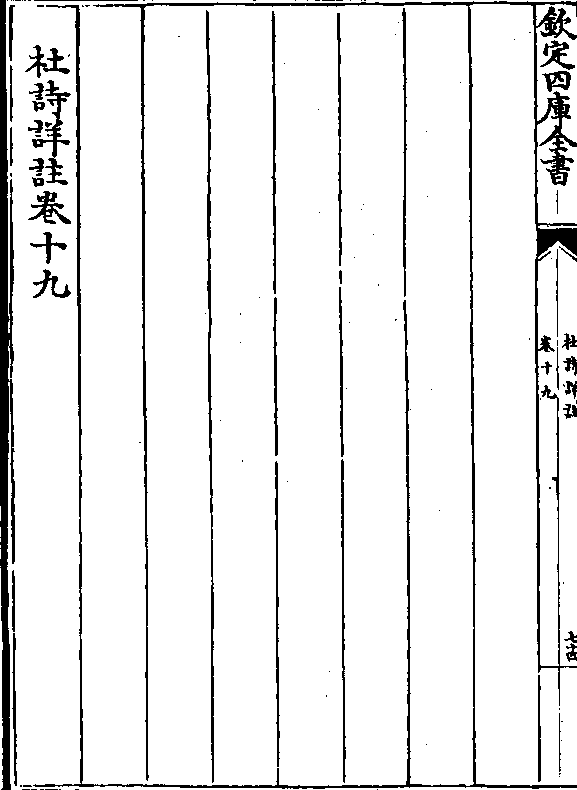 欽定四庫全書
杜詩詳註
卷十九
七十四
杜詩詳註卷十九